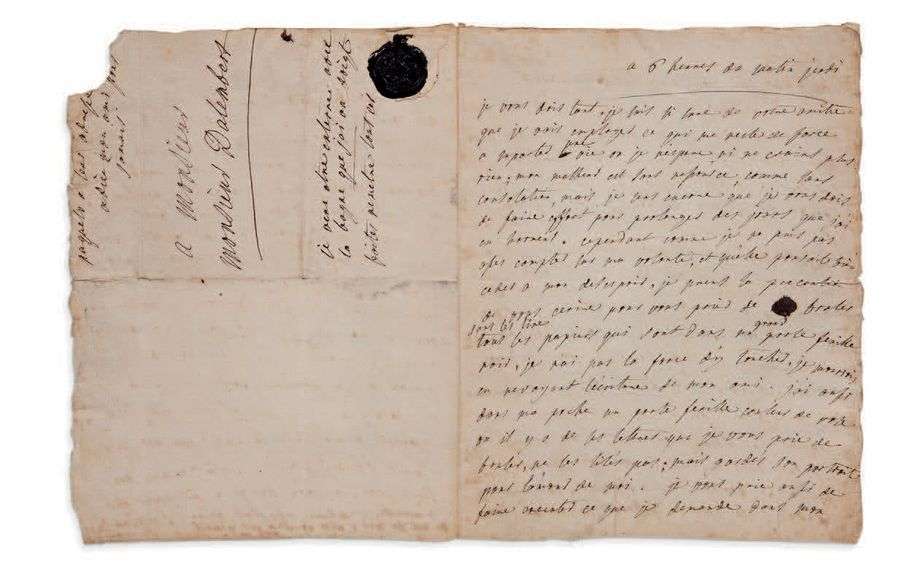 paquets a son adresse
adieu mon ami pour
jamais
a
monsieur
monsieur Dalembert
je veux etre enterrée avec
la bague que jai au doigt
faites remetre tout ces
a 6 heures du matin jeudi
je vous dois tout, je suis si sure de votre amitie
que je vais employer ce qui me reste de force
a suporter une vie ou je nespere ni ne crains plus
rien, mon malheur est sans ressource, comme sans
consolation, mais je sens encore que je vous dois
de faire effort pour prolonger des jours que jai
en horreur. cependant comme je ne puis pas
asses compter sur ma volonte, et quelle pouroit
ceder a mon desespoir, je prens la precaution
de vous ecrire pour vous prier de bruler
sans les lire
tous les papiers qui sont dans un grand porte feuille
noir, je nai pas la force dy toucher, je mourrois
en revoyant lecriture de mon ami. jai aussi
dans ma poche un porte feuille couleur de rose
ou il y a de ses lettres que je vous prie de
bruler, ne les lises pas, mais gardes son portrait
pour lamour de moi. je vous prie aussi de
faire executer ce que je demande dans mon